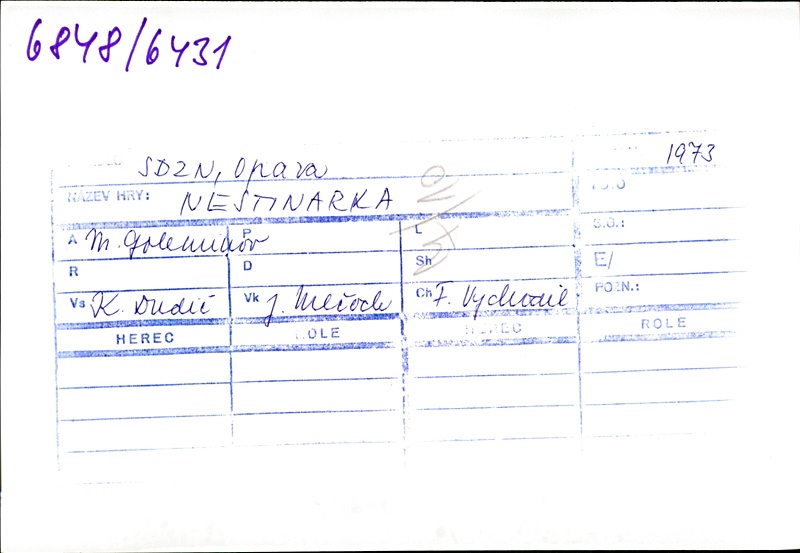 6848/6431
SDZN, Opava 1973
NÁZEV HRY: NESTINARKA
A M. Goleminov P L S.O.:
R D Sh E/
Vs K. Dudič Vk J. Mečoch Ch F. Vychodil POZN.:
HEREC ROLE HEREC ROLE